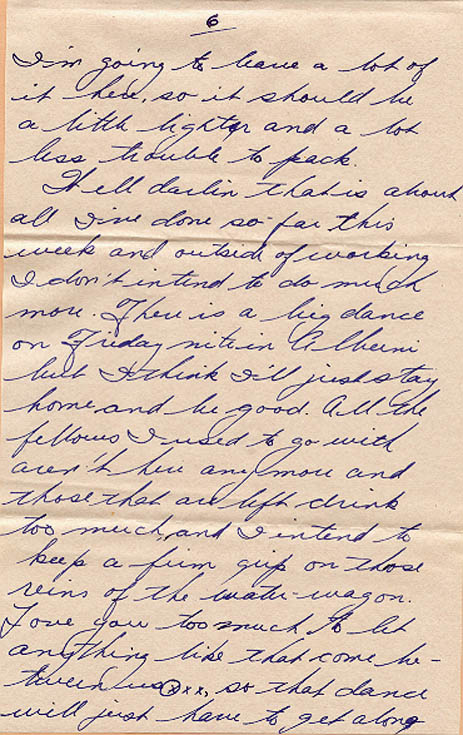 6
I'm going to leave a lot of
it here, so it should be
a little lighter and a lot
less trouble to pack.
Well darlin that is about
all I've done so far this
week and outside of working
I don't intend to do much
more. There is a big dance
on Friday nite in Alberni
but I think I'll just stay
home and be good. All the
fellows I used to go with
aren't here any more and
those that are left drink
too much, and I intend to
keep a firm grip on those
reins of the water-wagon.
Love you too much to let
anything like that come be-
tween us xxx, so that dance
will just have to get along